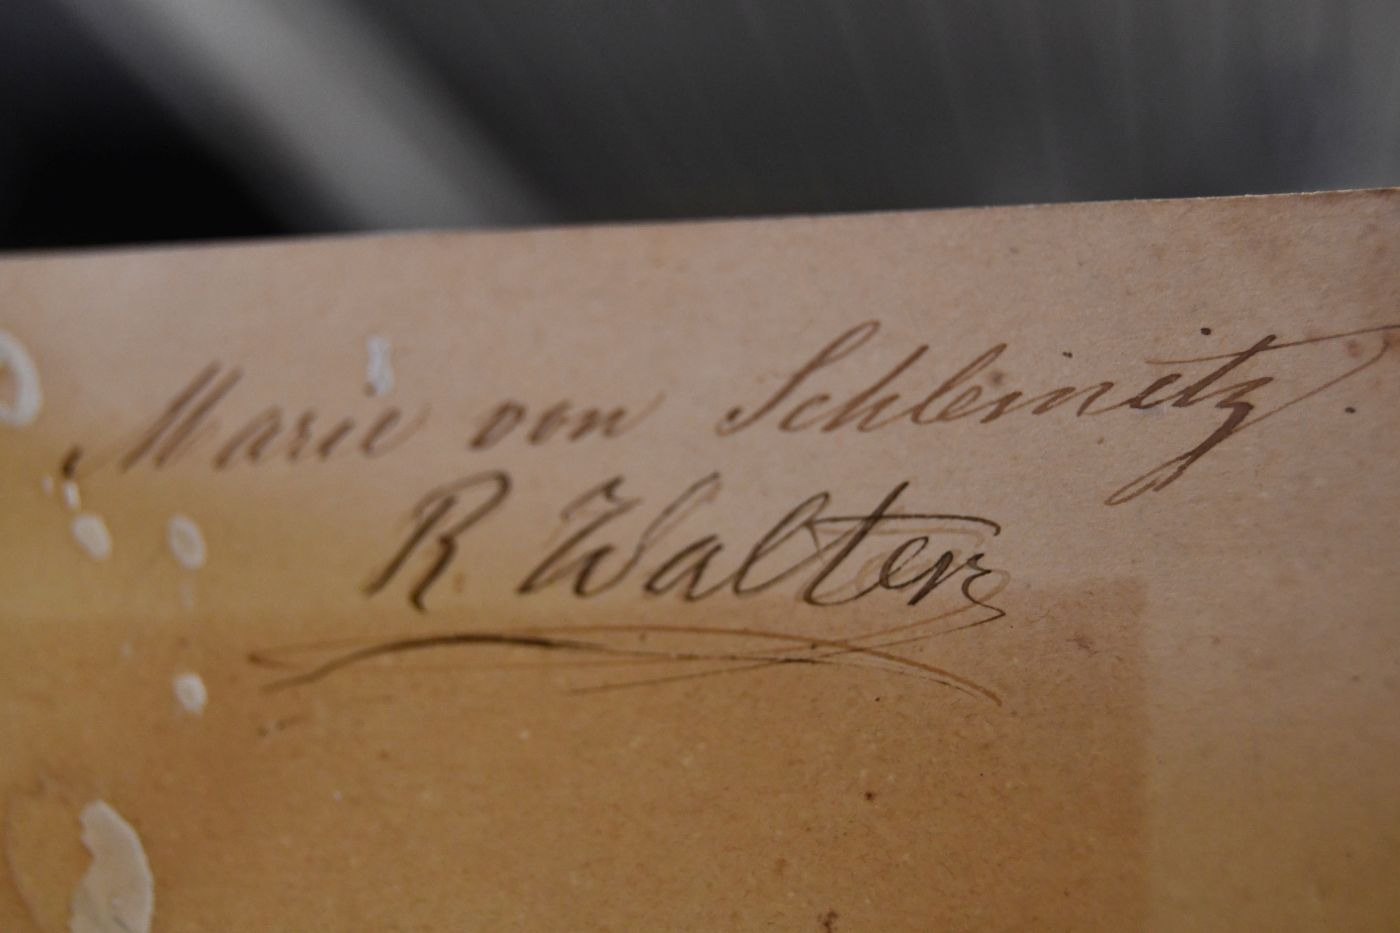 Marie von Schleinitz.
R Walter